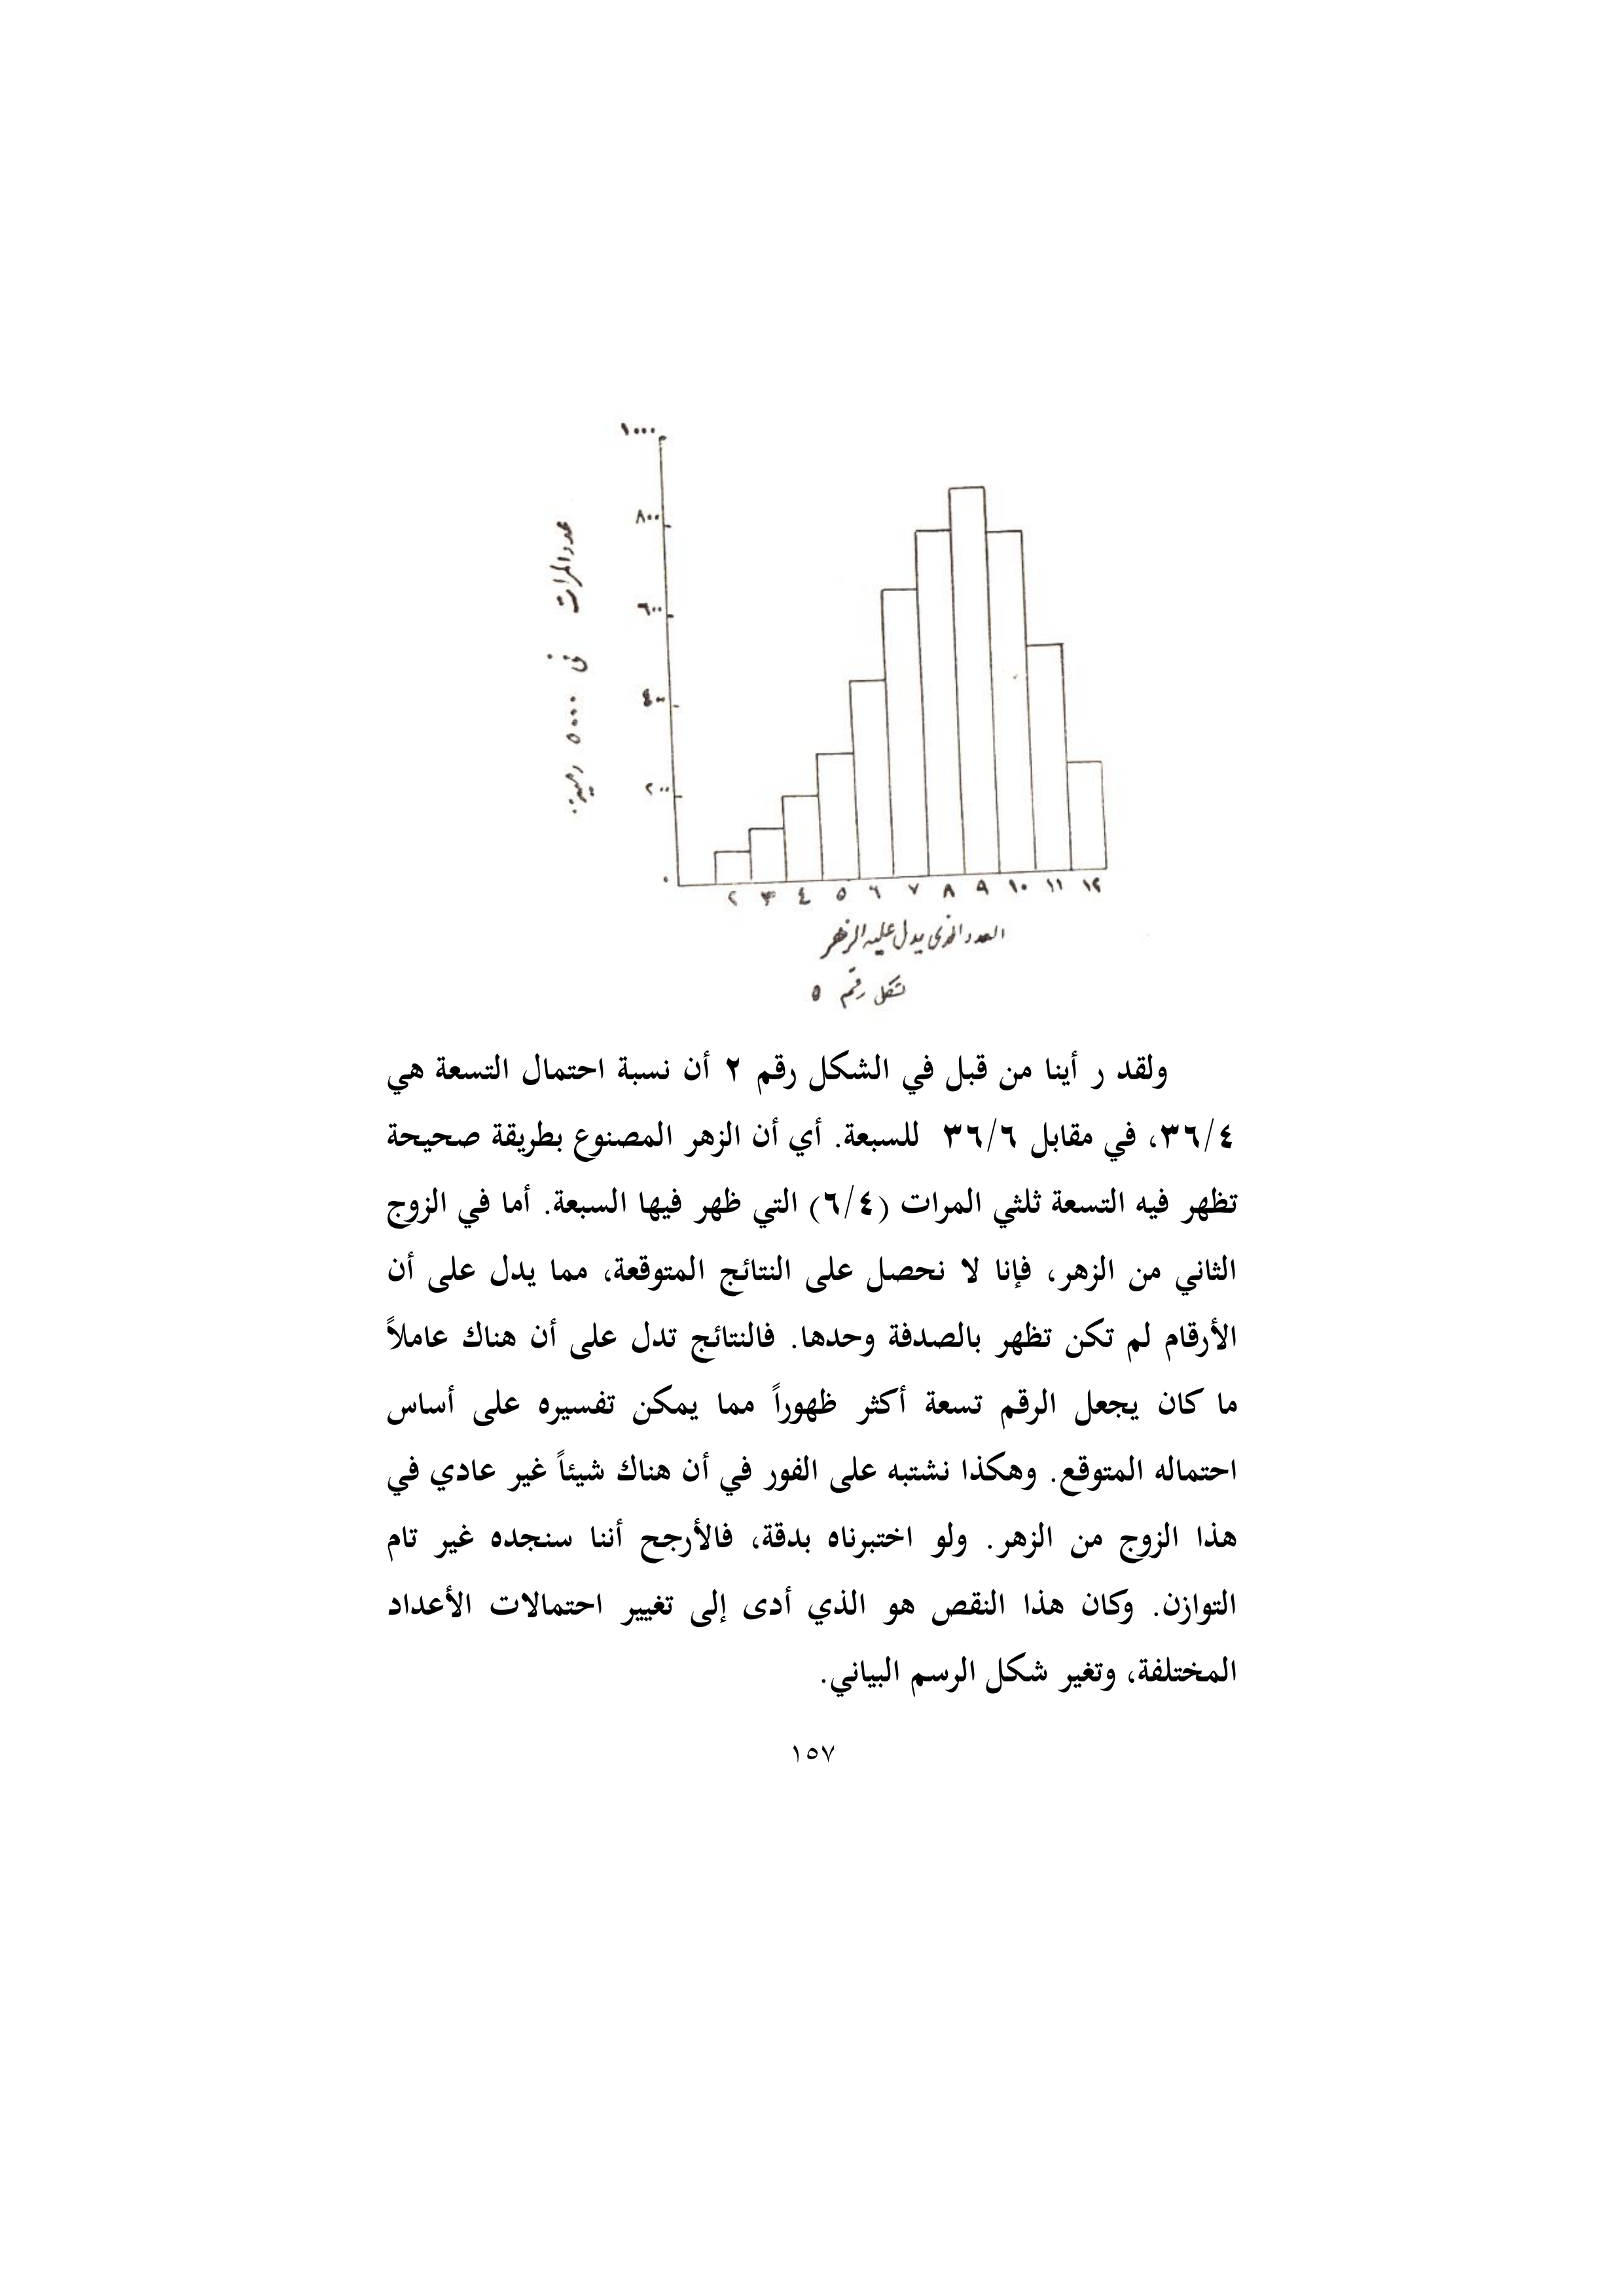 ١٠٠٠
٨٠٠
٦٠٠
٤٠٠
٢٠٠
٠
عدد المرات فى ٥٠٠٠ رمية
٢ ٣ ٤ ٥ ٦ ٧ ٨ ٩ ١٠ ١١ ١٢
العدد الذى يدل عليه الزهر
شكل رقم ٥
ولقد ر أينا من قبل في الشكل رقم ٢ أن نسبة احتمال التسعة هي
٣٦/٤، في مقابل ٣٦/٦ للسبعة. أي أن الزهر المصنوع بطريقة صحيحة
تظهر فيه التسعة ثلثي المرات (٦/٤) التي ظهر فيها السبعة. أما في الزوج
الثاني من الزهر، فإنا لا نحصل على النتائج المتوقعة، مما يدل على أن
الأرقام لم تكن تظهر بالصدفة وحدها. فالنتائج تدل على أن هناك عاملاً
ما كان يجعل الرقم تسعة أكثر ظهوراً مما يمكن تفسيره على أساس
احتماله المتوقع. وهكذا نشتبه على الفور في أن هناك شيئاً غير عادي في
هذا الزوج من الزهر. ولو اختبرناه بدقة، فالأرجح أننا سنجده غير تام
التوازن. وكان هذا النقص هو الذي أدى إلى تغيير احتمالات الأعداد
المختلفة، وتغير شكل الرسم البياني.
١٥٧